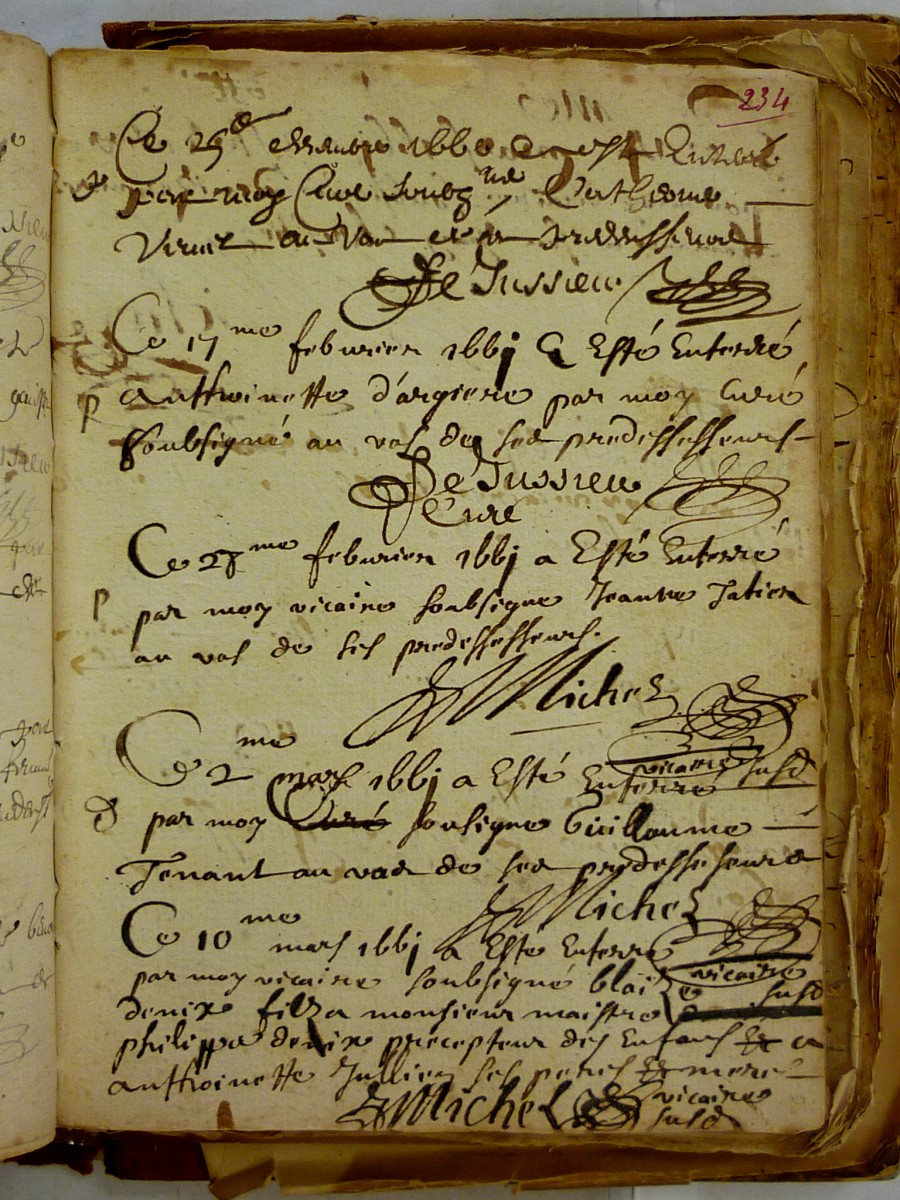 234
Ce 29e decembre 1660 a esté Enterré
par moy Cure soubsigné Catherine
au vas de ses predessesseurs
De Jussieu
Ce 17me feburier 1661 a Esté Enterré
p anthoinette d'argiere par moy Curé
soubsigné au vas de ses predessesseurs
De Jussieu
Cure
Ce 27me feburier 1661 a Esté Enterré
p par moy vicaire soubsigne Jeanne Tatien
au vas de ses predessesseurs.
Michel
vicaire susd
Ce 2me mars 1661 a Esté Enterré
par moy Curé sousigne Guillaume
Tenant au vas de ses predessesseurs
Michel
vicaire susd
Ce 10me mars 1661 a Esté Enterre
par moy vicaire soubsigné blaize
denix filz a monsieur maistre
philippe denix precepteur des Enfans Et a
anthoinette Jullien ses peres Et mere
Michel vicaire
susd